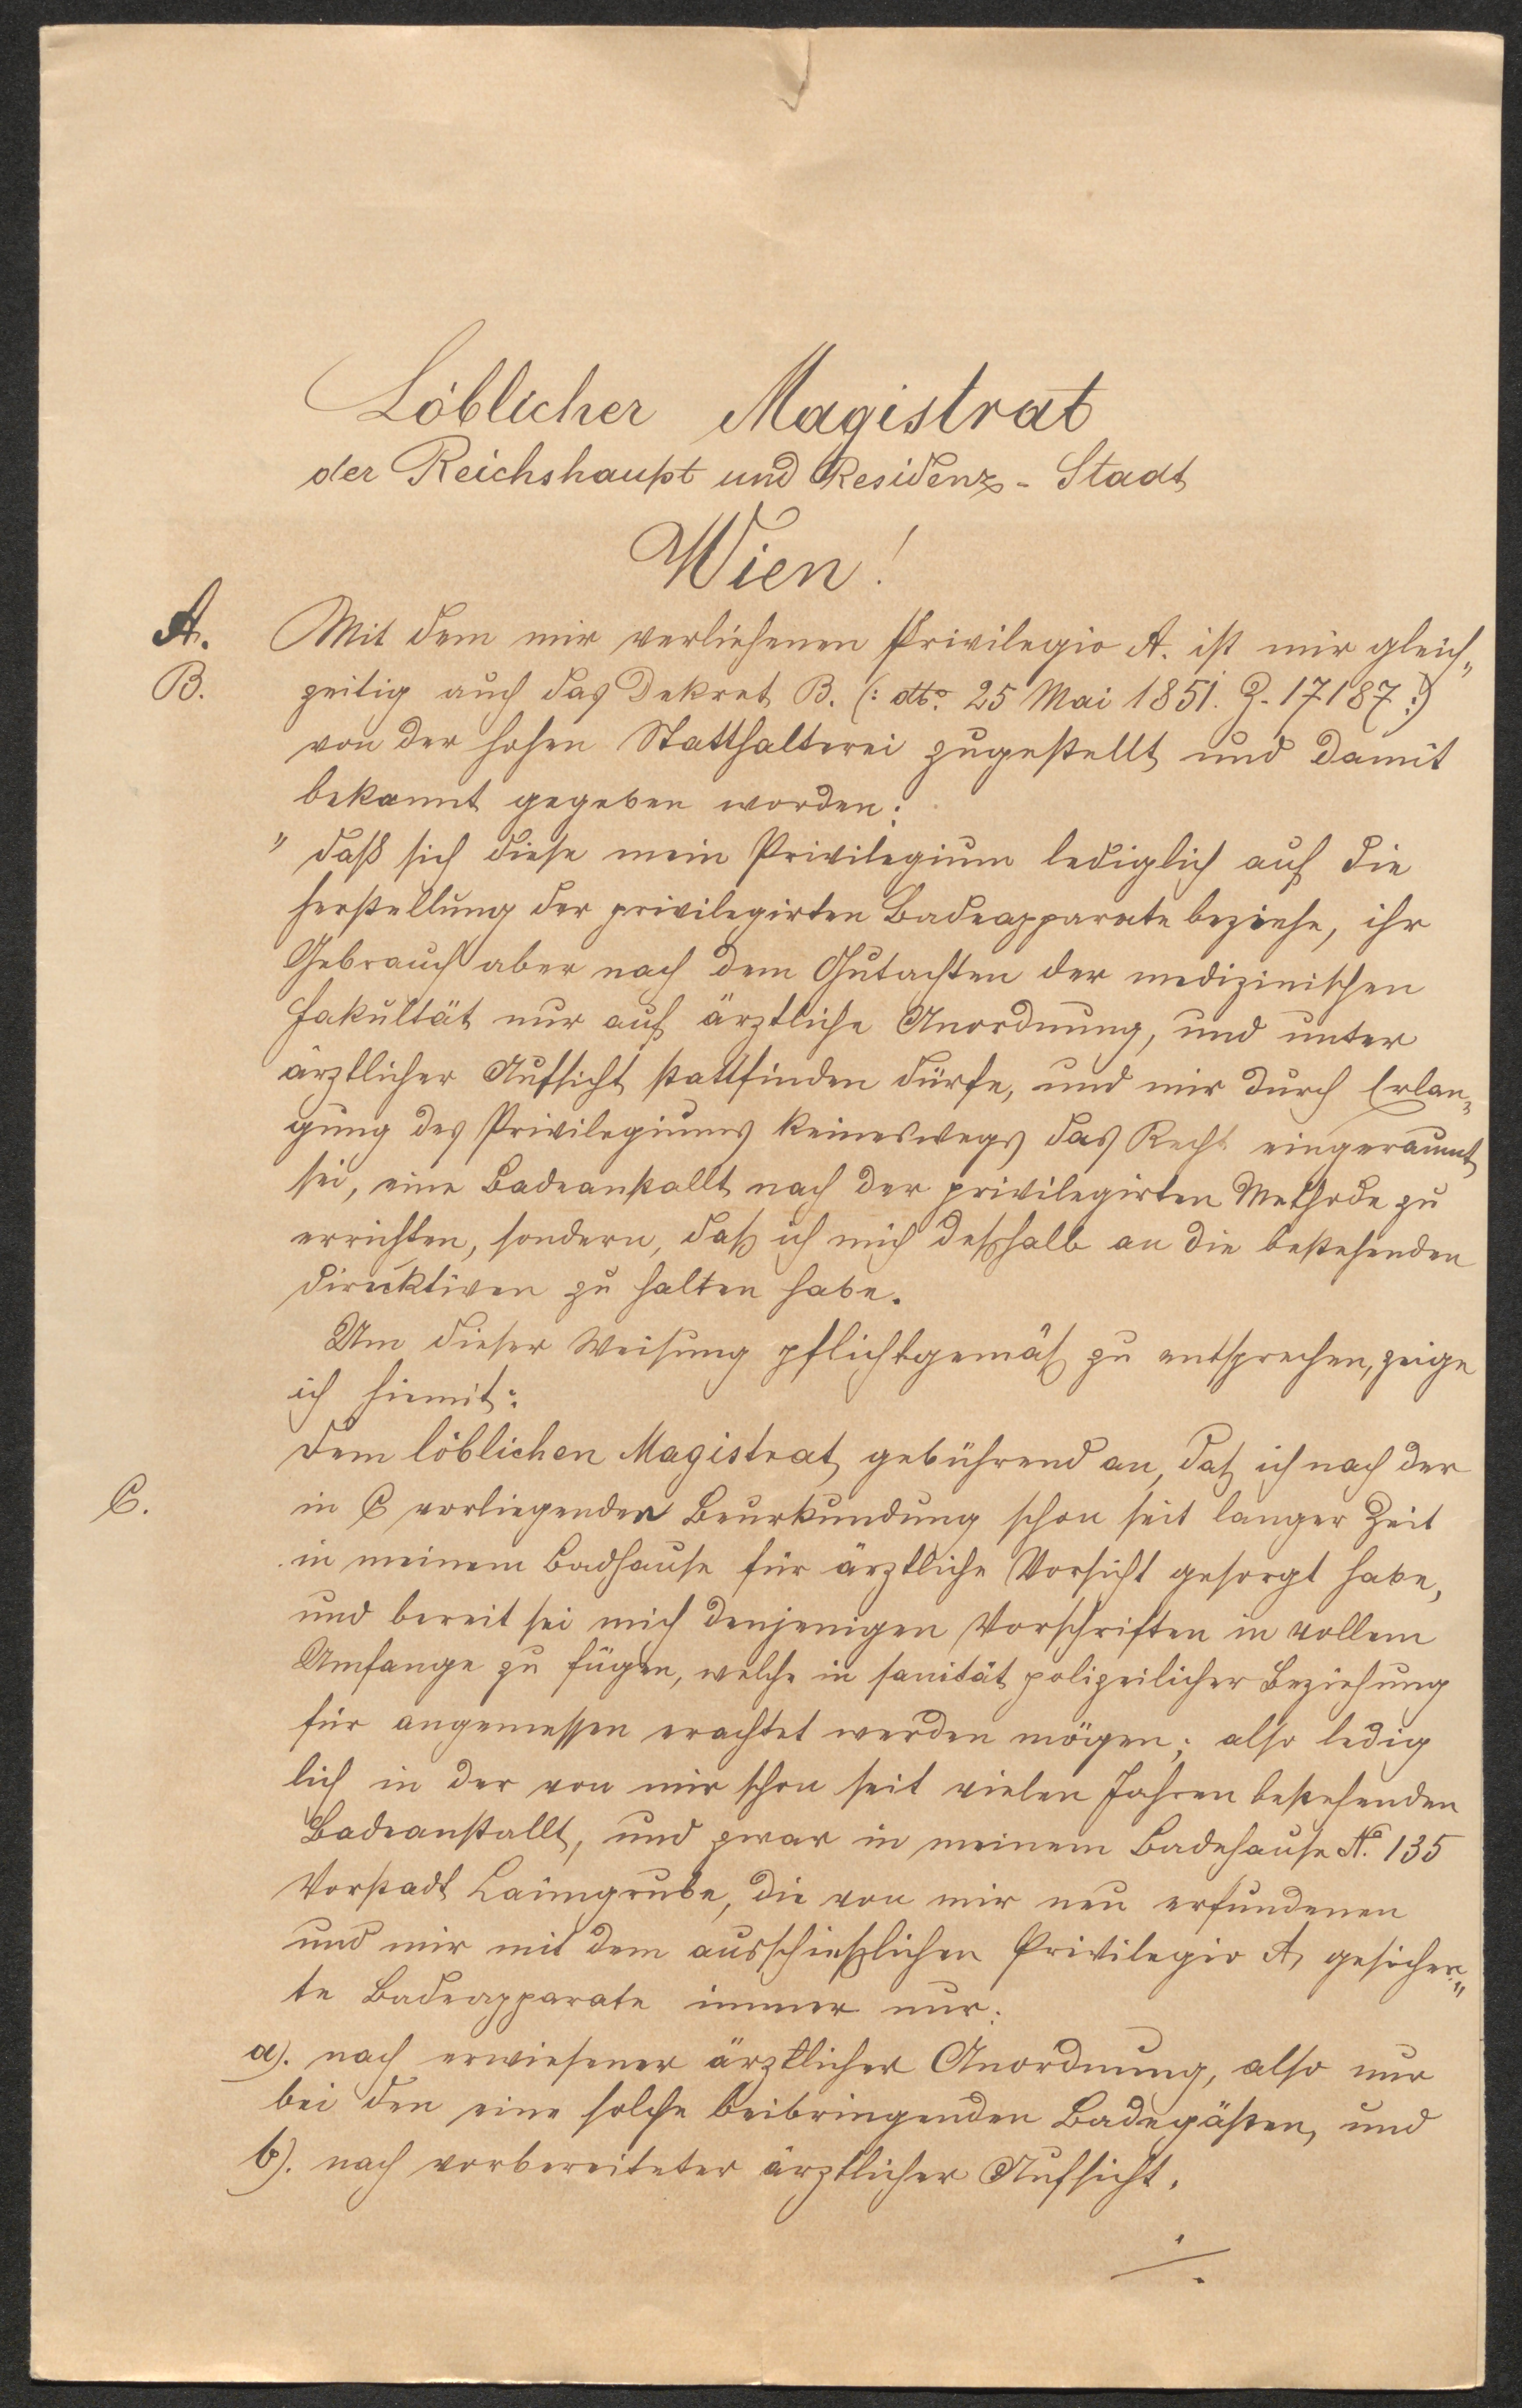 Löblicher Magistrat
der Reichshaupt und Residenz-Stadt
Wien!
A. Mit dem mir verliehenen Privilegio A. ist mir gleich„
B. zeitig auch das Dekret B. (: dto. 25 Mai 1851. Z. 17187 :)
von der hohen Statthalterei zugestellt und damit
bekannt gegeben worden:
" daß sich diese mein Privilegium lediglich auf die
Herstellung der privilegirten Badeapparate beziehe, ihr
Gebrauch aber nach dem Gutachten der medizinischen
Fakultät nur auf ärztliche Anordnung, und unter
ärztlicher Aufsicht stattfinden dürfe, und mir durch Erlan„
gung des Privilegiums keineswegs das Recht eingeraumt
sei, eine Badeanstallt nach der privilegirten Methode zu
errichten, sondern, daß ich mich deßhalb an die bestehenden
Direcktiven zu halten habe.
Um dieser Weisung pflichtgemäß zu entsprechen, zeige
ich hiemit:
dem löblichen Magistrat gebührend an, daß ich nach der
C. in C vorliegenden Beurkundung schon seit langer Zeit
in meinem Badhause für ärztliche Vorsicht gesorgt habe,
und bereit sei mich denjenigen Vorschriften in vollem
Umfange zu fügen, welche in sanität polizeilicher Beziehung
für angemessen erachtet werden mögen; also ledig
lich in der von mir schon seit vielen Jahren bestehenden
Badeanstallt, und zwar in meinem Badehause No. 135
Vorstadt Laimgrube, die von mir neu erfundenen
und mir mit dem ausschießlichen Privilegio A, gesicher„
te Badeapparate immer nur:
a). nach erwiesener ärztlicher Anordnung, also nur
bei den eine solche beibringenden Badegästen, und
b). nach vorbereiteter ärztlicher Aufsicht.
./.